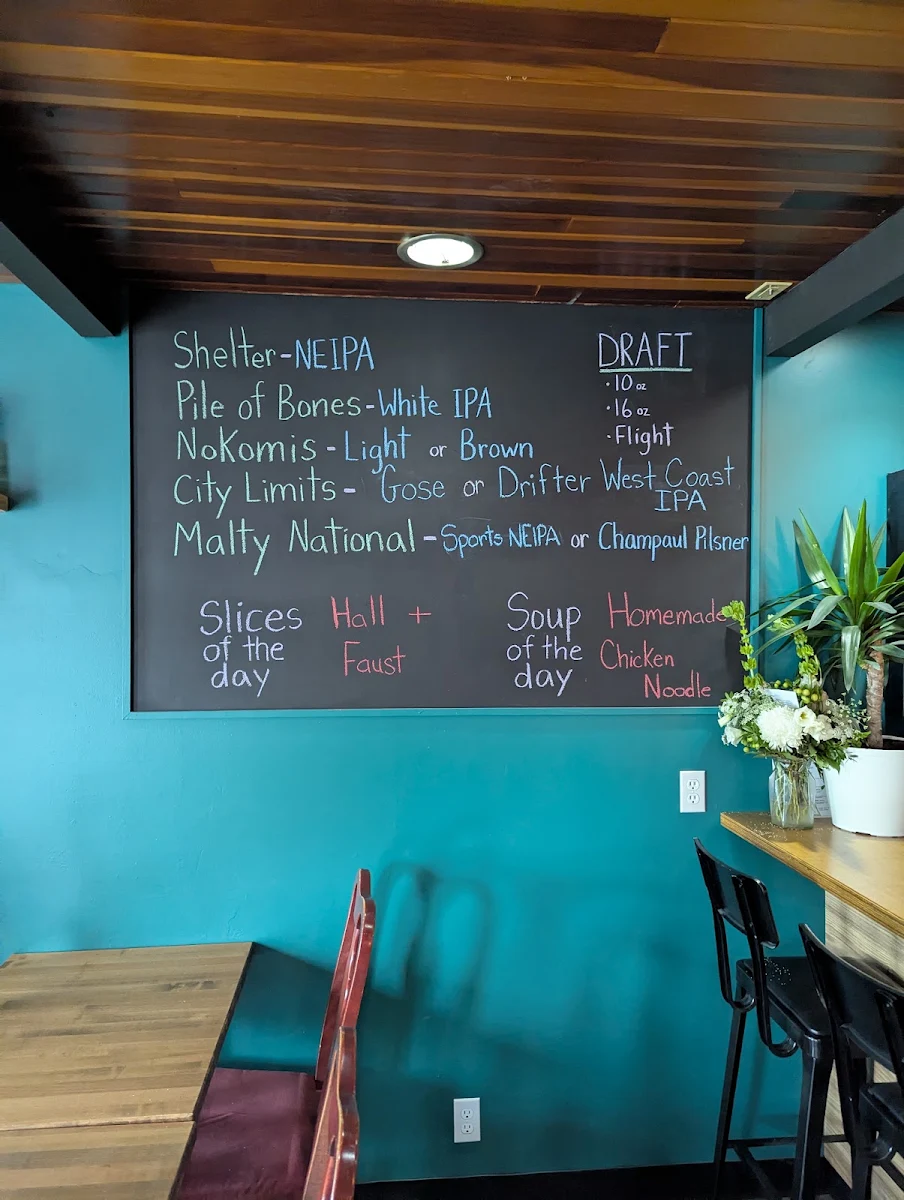 Shelter - NEIPA
Pile of Bones - White IPA
NoKomis - Light or Brown
City Limits - Gose or Drifter West Coast
IPA
Malty National - Sports NEIPA or Champaul Pilsner
DRAFT
· 10 oz
· 16 oz
· Flight
Slices
of the
day
Hall +
Faust
Soup
of the
day
Homemade
Chicken
Noodle